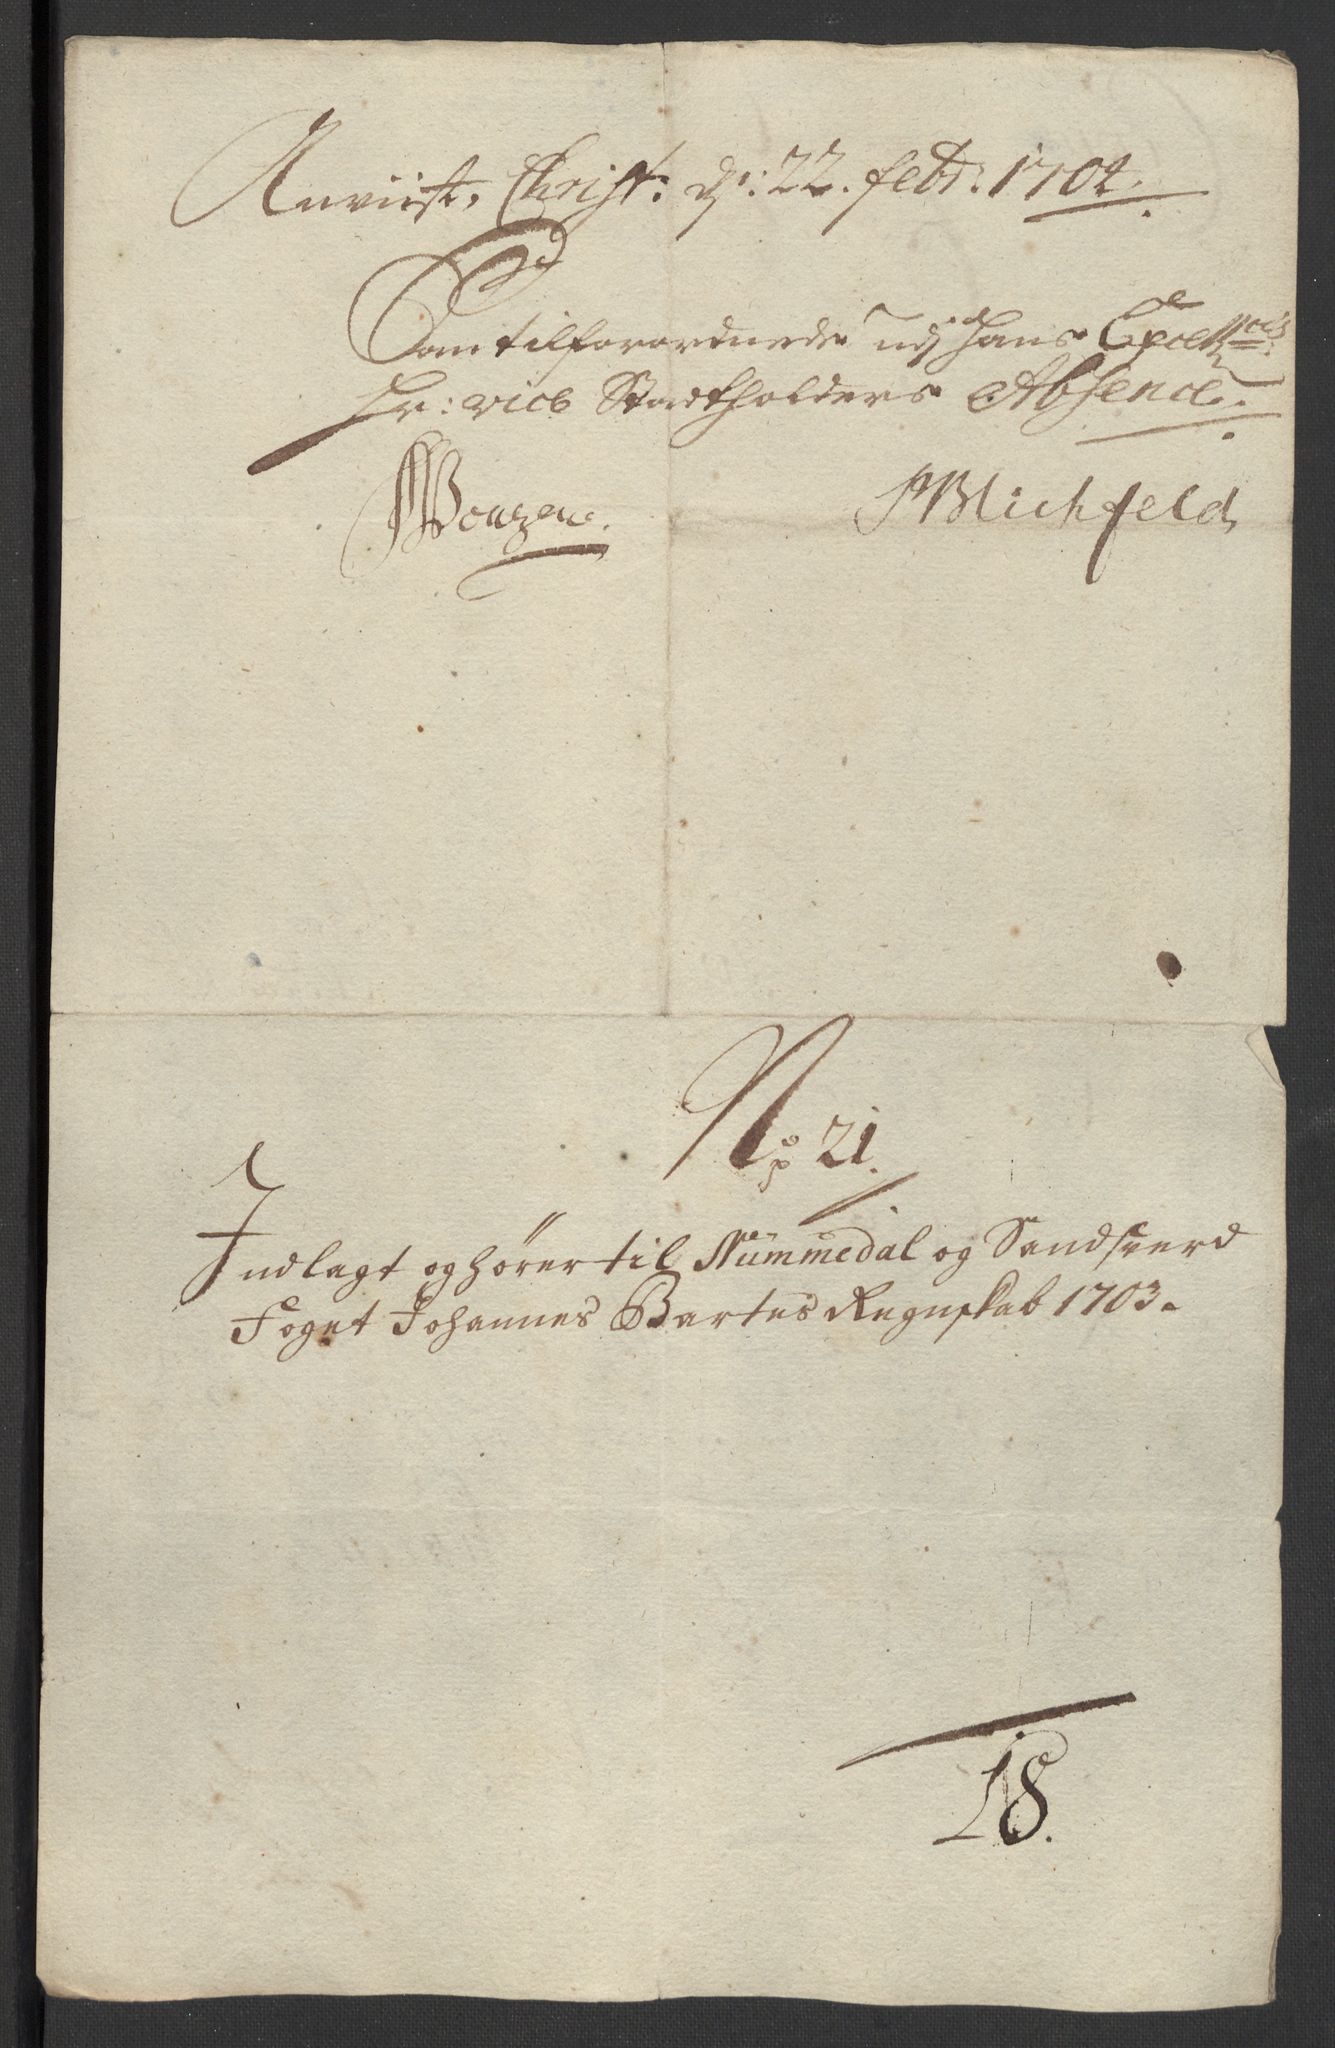 Anviist, Christ: dn: 22. febr: 1704.
Samtilforordnede udj Hans Excell
Hr: vice Stadtholders Absence.
PBlichfeld
No 21.
Indlagt og hörer til Nummedal og Sandsverd
Foget Johannes Bartes Regnskab 1703.
18.